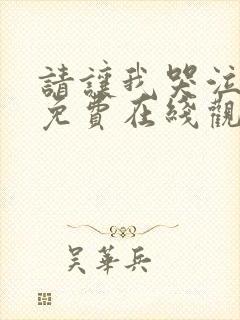 請讓我哭泣
免費在綫觀
吳華兵